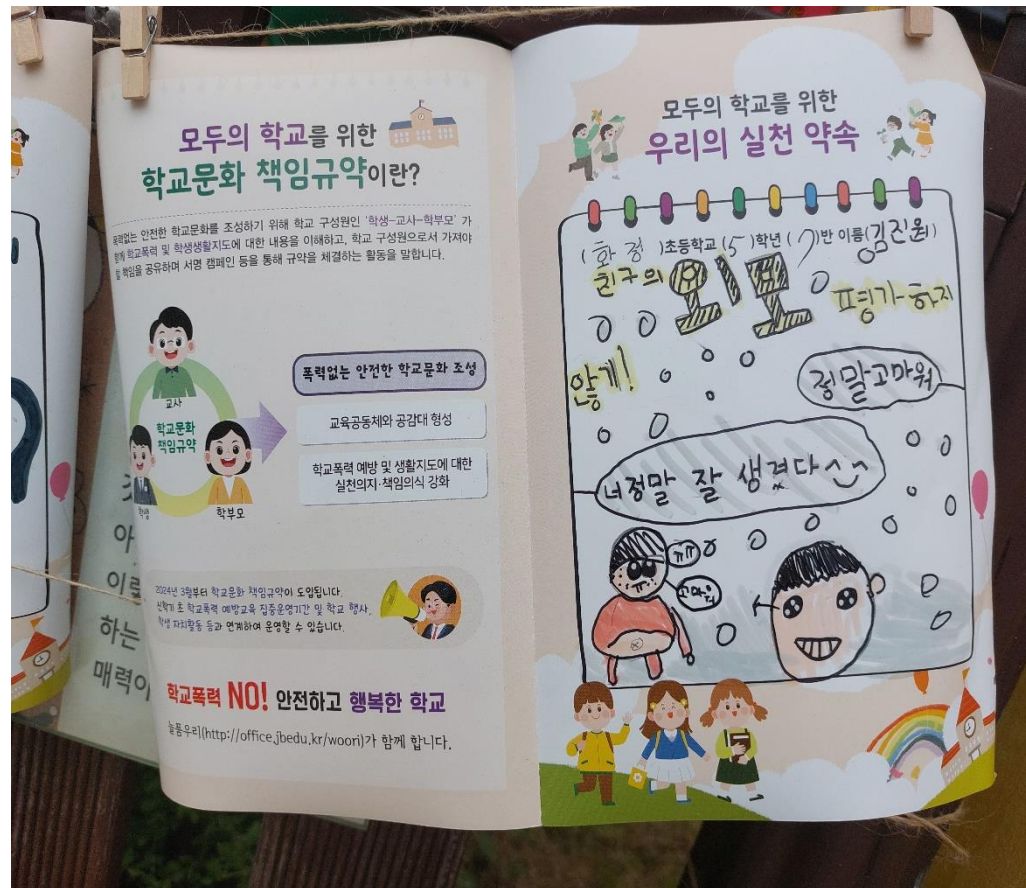 모두의 학교를 위한
학교문화 책임규약이란?
폭력없는 안전한 학교문화를 조성하기 위해 학교 구성원인 '학생-교사-학부모' 가
함께 학교폭력 및 학생생활지도에 대한 내용을 이해하고, 학교 구성원으로서 가져야
할 책임을 공유하며 서명 캠페인 등을 통해 규약을 체결하는 활동을 말합니다.
교사
학교문화
책임규약
학생
학부모
폭력없는 안전한 학교문화 조성
교육공동체와 공감대 형성
학교폭력 예방 및 생활지도에 대한
실천의지·책임의식 강화
2024년 3월부터 학교문화 책임규약이 도입됩니다.
신학기 초 학교폭력 예방교육 집중운영기간 및 학교 행사,
학생 자치활동 등과 연계하여 운영할 수 있습니다.
학교폭력 NO! 안전하고 행복한 학교
늘품우리(http://office.jbedu.kr/woori)가 함께 합니다.
모두의 학교를 위한
우리의 실천 약속
(화정)초등학교 (5)학년 (7)반 이름(김진원)
친구의 외모 평가하지
않게!
정말고마워
너정말 잘 생겼다^^
ㅠㅠ
고마워
아
이
하는
매력이